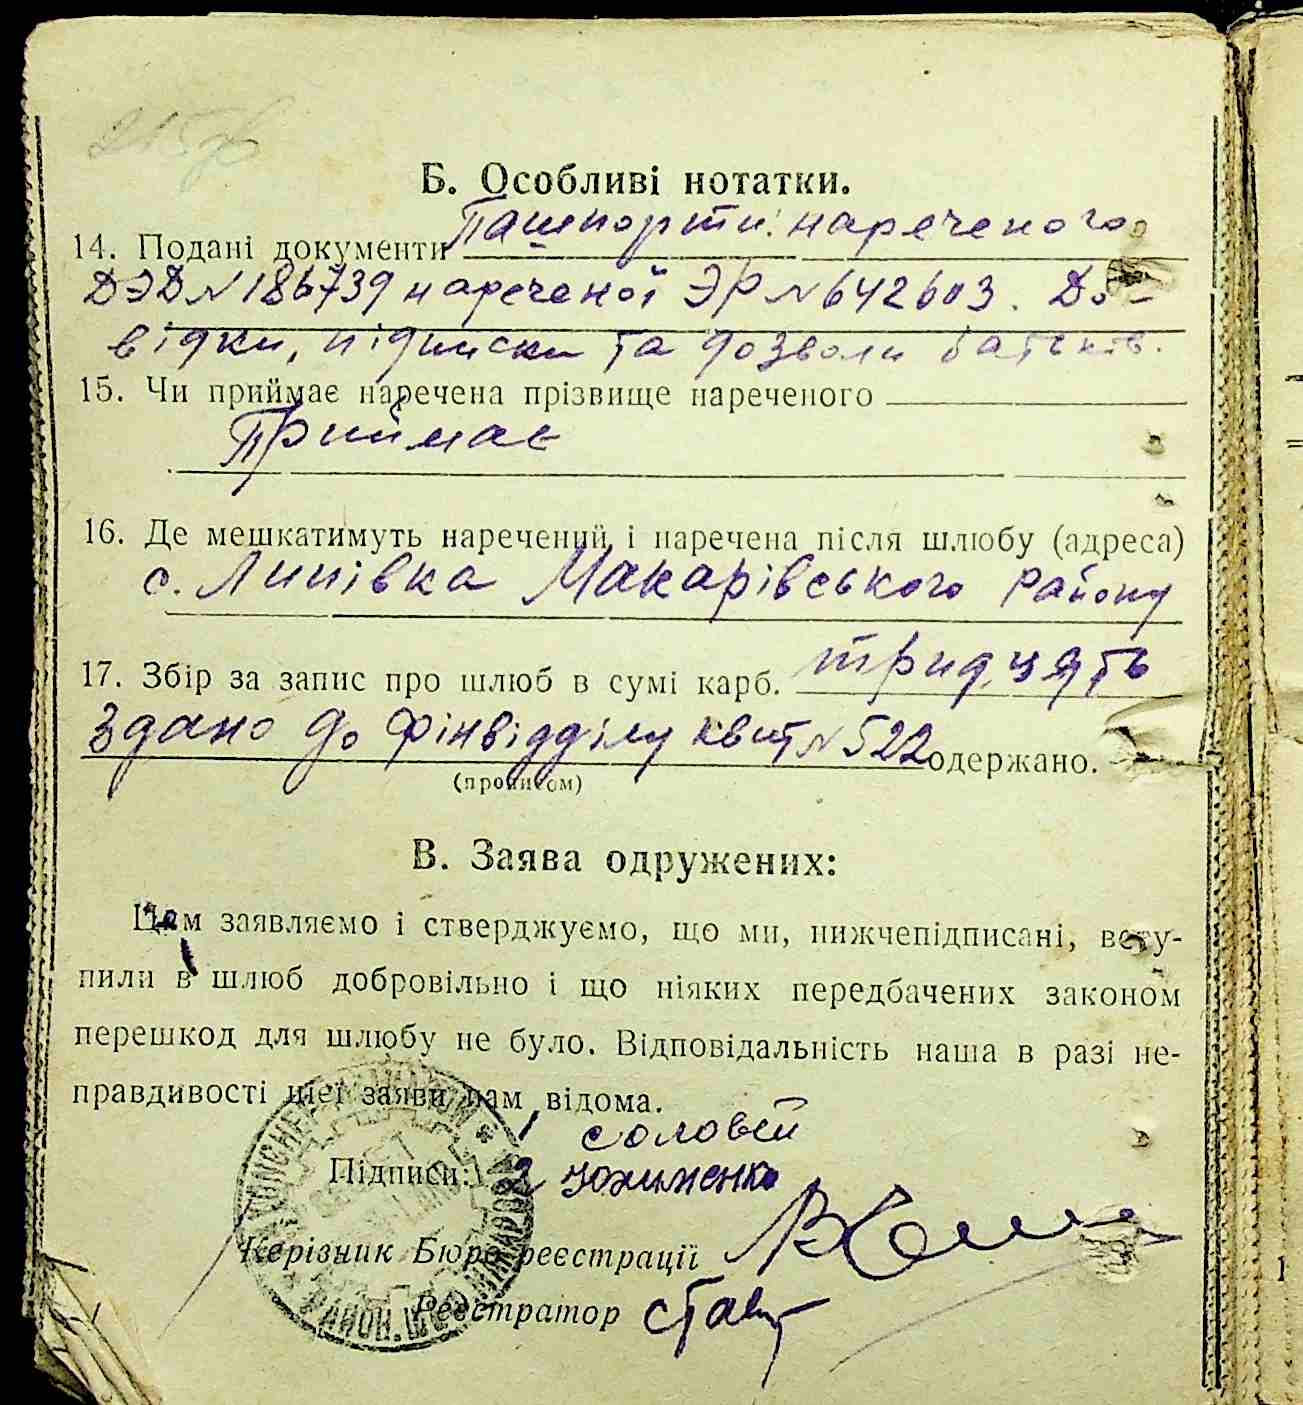 Б. Особливі нотатки.
14. Подані документи Пашпорти: нареченого
ДЭД №186739 нареченої ЭР №642603. До-
відки, підписки та дозволи батьків.
15. Чи приймає наречена прізвище нареченого
Приймає
16. Де мешкатимуть наречений і наречена після шлюбу (адреса)
с. Липівка Макарівського району
17. Збір за запис про шлюб в сумі карб. тридцять
Здано до Фінвідділу квит №522 одержано.
(прописом)
В. Заява одружених:
Цим заявляємо і стверджуємо, що ми, нижчепідписані, всту-
пили в шлюб добровільно і що ніяких передбачених законом
перешкод для шлюбу не було. Відповідальність наша в разі не-
правдивості цієї заяви нам відома.
1 Соловей
Підписи: 2
Керівник Бюро реєстрації
Реєстратор